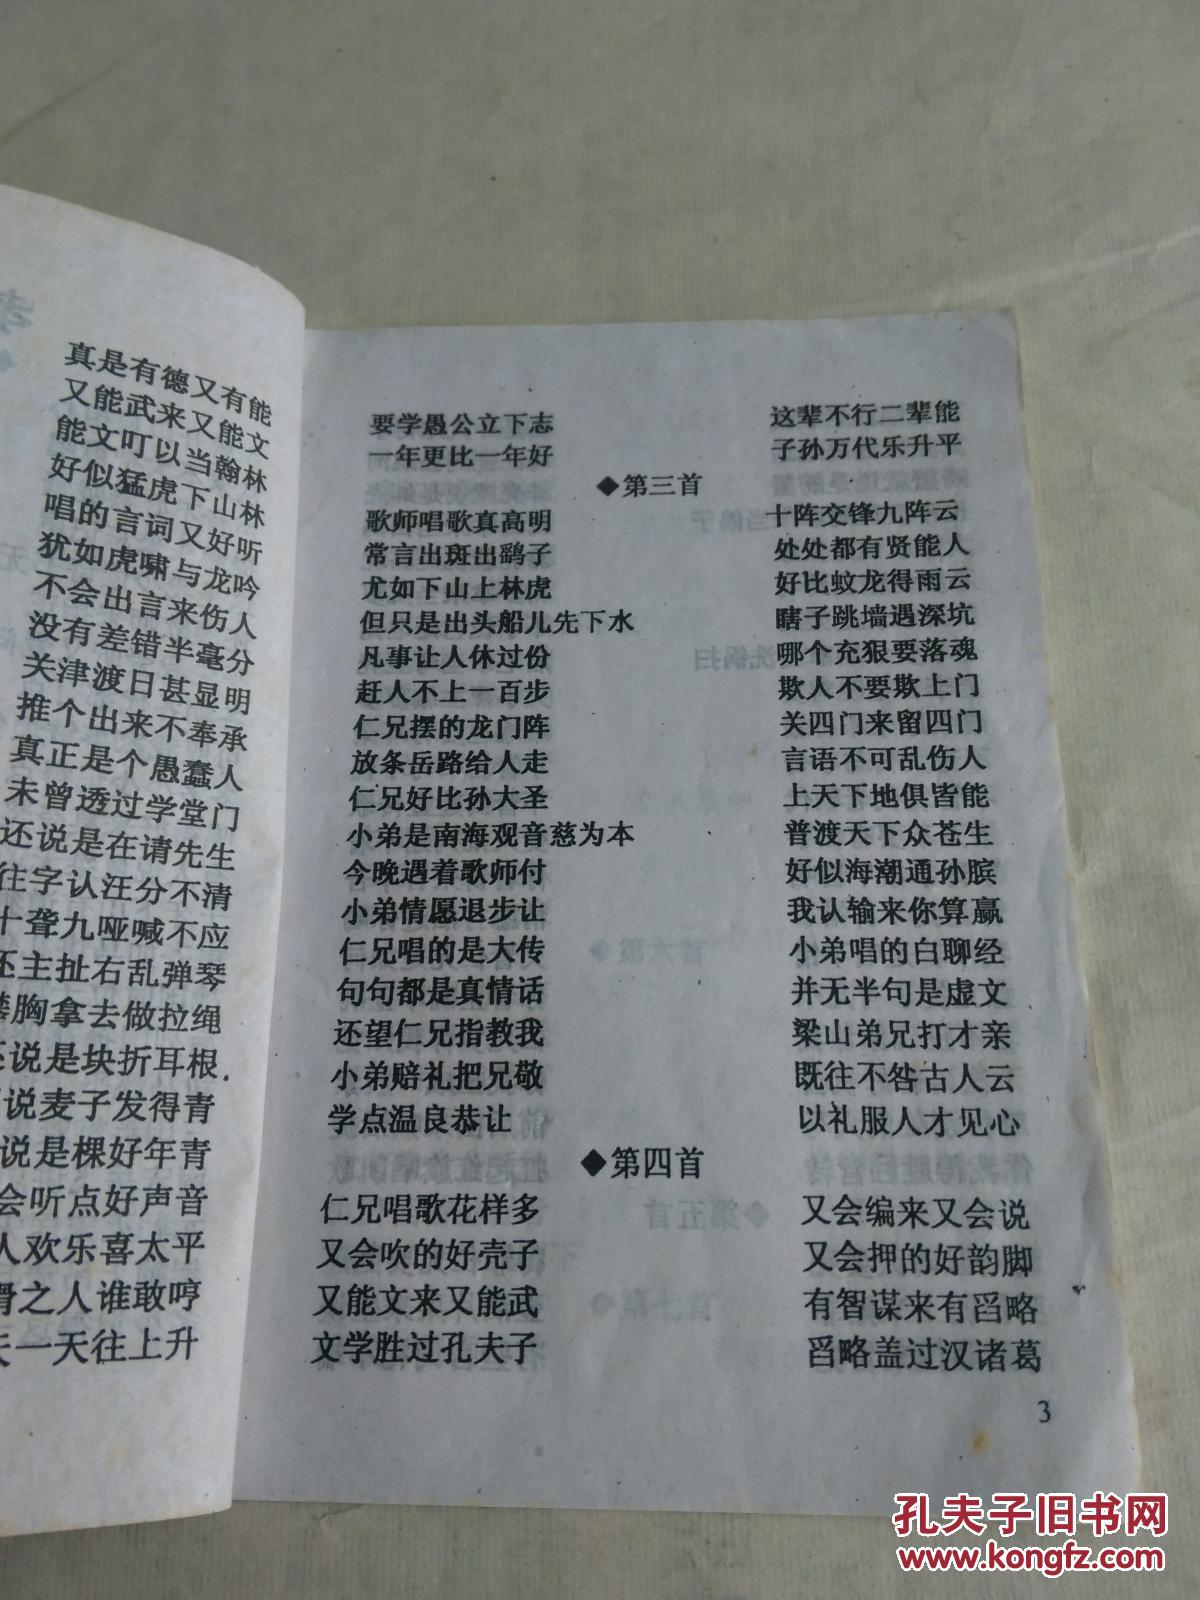 真是有德又有能
又能武来又能文
能文叮以当翰林
好似猛虎下山林
唱的言词又好听
犹如虎啸与龙吟
不会出言来伤人
没有差错半毫分
关津渡日甚显明
推个出来不奉承
真正是个愚蠢人
未曾透过学堂门
还说是在请先生
往字认汪分不清
十聋九哑喊不应
主扯右乱弹琴
胸拿去做拉绳
说是块折耳根
说麦子发得青
说是棵好年青
会听点好声音
人欢乐喜太平
之人谁敢哼
天一天往上升
要学愚公立下志 这辈不行二辈能
一年更比一年好 子孙万代乐升平
◆第三首
歌师唱歌真高明 十阵交锋九阵云
常言出斑出鹞子 处处都有贤能人
尤如下山上林虎 好比蚊龙得雨云
但只是出头船儿先下水 瞎子跳墙遇深坑
凡事让人休过份 哪个充狠要落魂
赶人不上一百步 欺人不要欺上门
仁兄摆的龙门阵 关四门来留四门
放条岳路给人走 言语不可乱伤人
仁兄好比孙大圣 上天下地俱皆能
小弟是南海观音慈为本 普渡天下众苍生
今晚遇着歌师付 好似海潮通孙膑
小弟情愿退步让 我认输来你算赢
仁兄唱的是大传 小弟唱的白聊经
句句都是真情话 并无半句是虚文
还望仁兄指教我 梁山弟兄打才亲
小弟赔礼把兄敬 既往不咎古人云
学点温良恭让 以礼服人才见心
◆第四首
仁兄唱歌花样多 又会编来又会说
又会吹的好壳子 又会押的好韵脚
又能文来又能武 有智谋来有舀略
文学胜过孔夫子 舀略盖过汉诸葛
3
孔夫子旧书网
www.kongfz.com